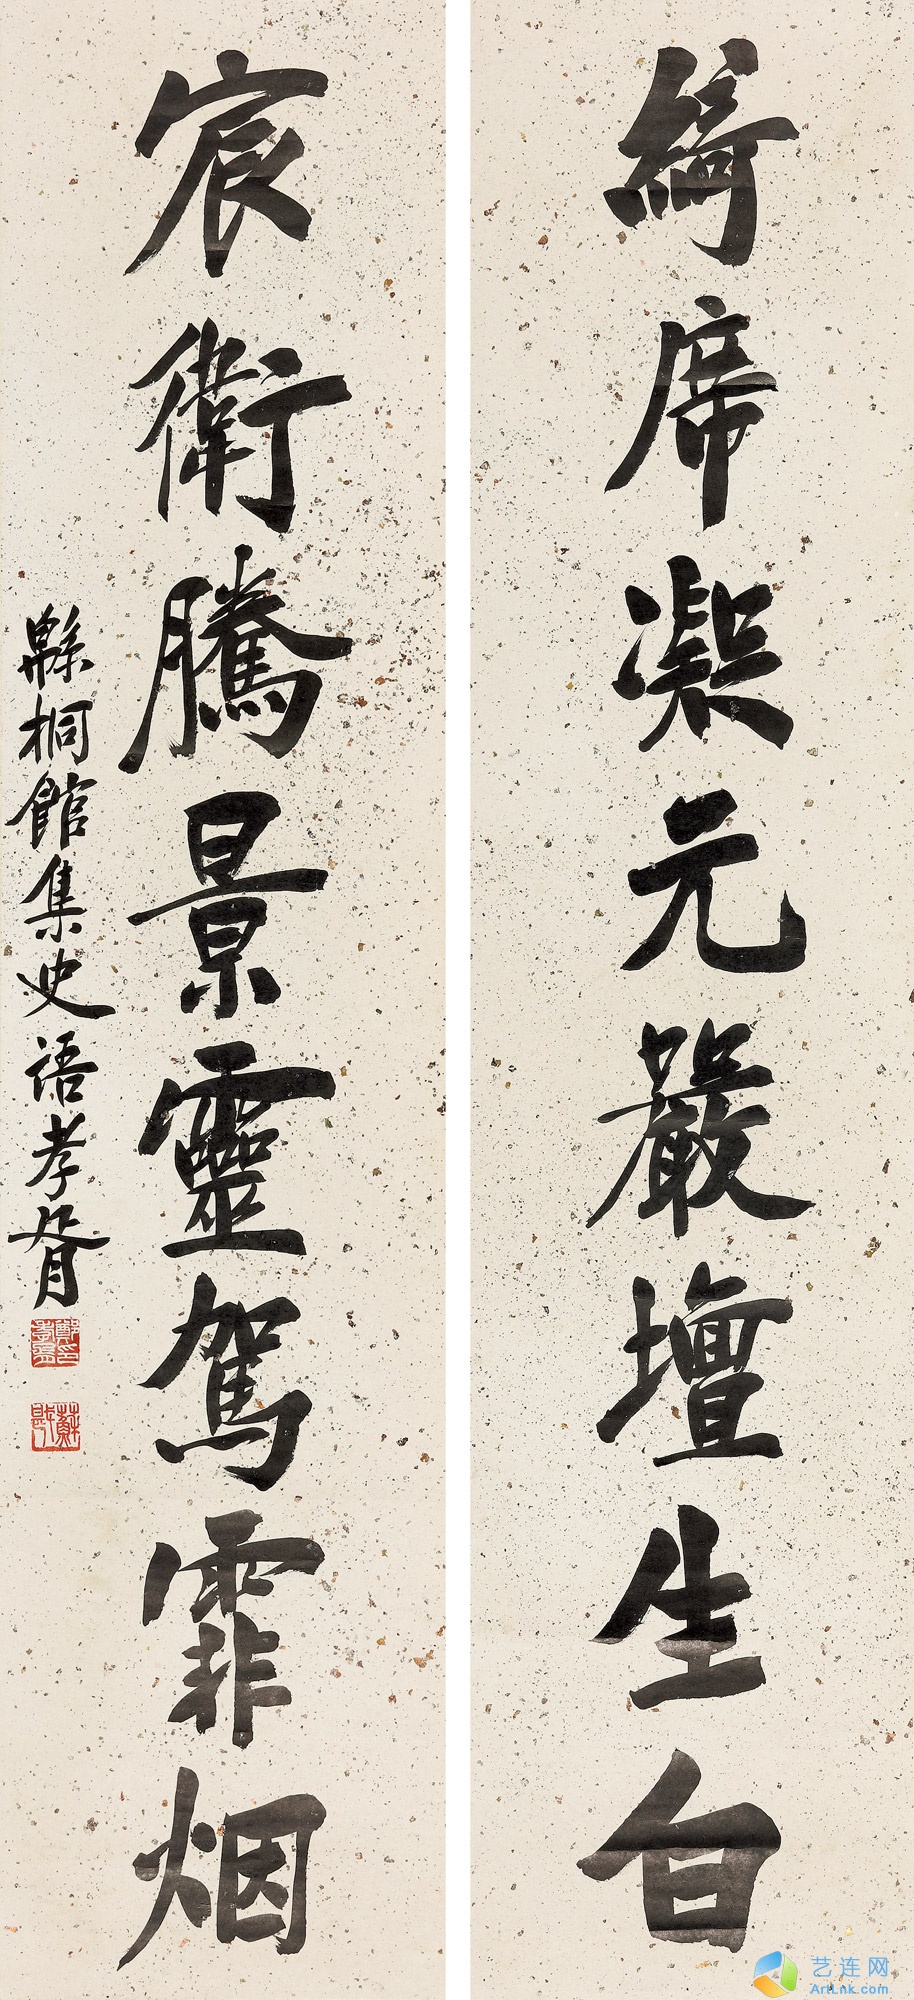 綺席凝元嚴壇生白
宸衛騰景靈駕霏烟
緜桐館集史語孝胥
鄭孝胥印
蘇戡
艺连网
ArtLnk.com